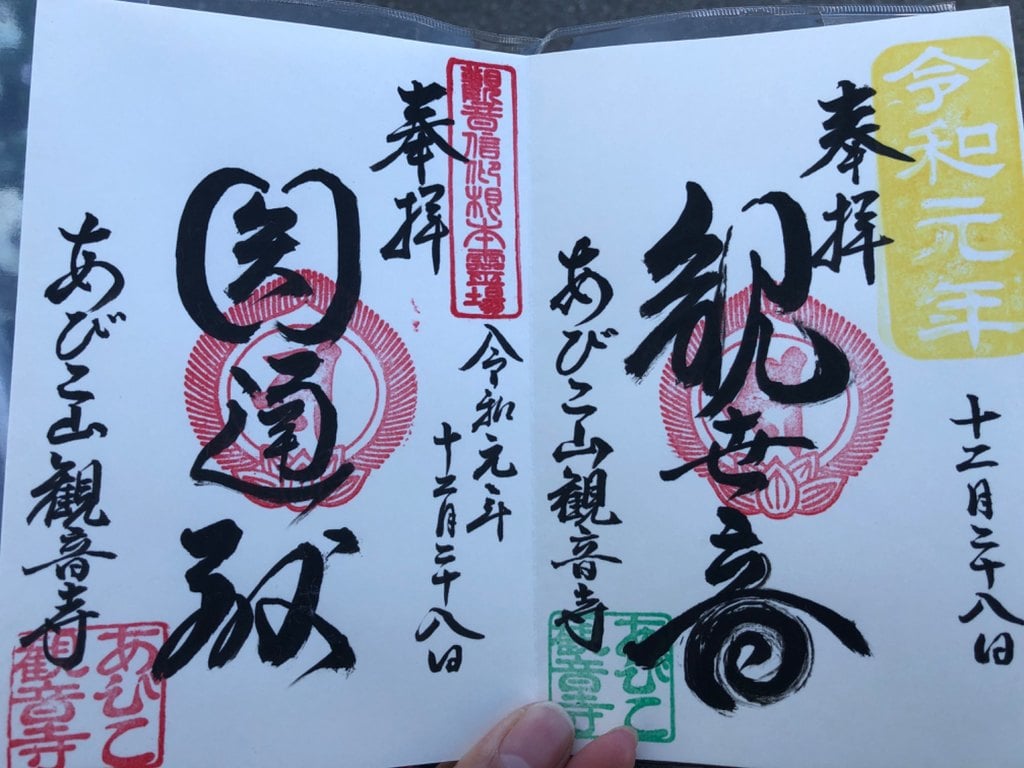 令和元年
十二月二十八日
奉拝
観世音
あびこ山観音寺
あびこ
観音寺
觀音信仰根本靈場
奉拝
令和元年
十二月二十八日
圓通殿
あびこ山観音寺
あびこ
観音寺